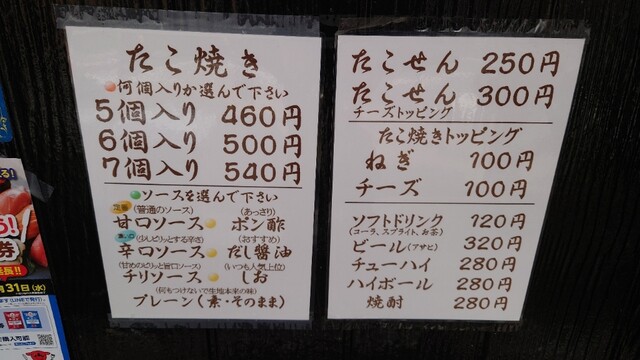 たこ焼き
何個入りか選んで下さい
5個入り 460円
6個入り 500円
7個入り 540円
ソースを選んで下さい
定番 (普通のソース) (あっさり)
甘口ソース ポン酢
(少しピリッとする辛さ) (おすすめ)
辛口ソース だし醤油
(甘めのピリッと旨口ソース) (いつも人気上位)
チリソース しお
(何もつけないで生地本来の味)
プレーン(素・そのまま)
たこせん 250円
たこせん 300円
チーズトッピング
たこ焼きトッピング
ねぎ 100円
チーズ 100円
ソフトドリンク 120円
(コーラ、スプライト、お茶)
ビール(アサヒ) 320円
チューハイ 280円
ハイボール 280円
焼酎 280円
券
月31日(水)